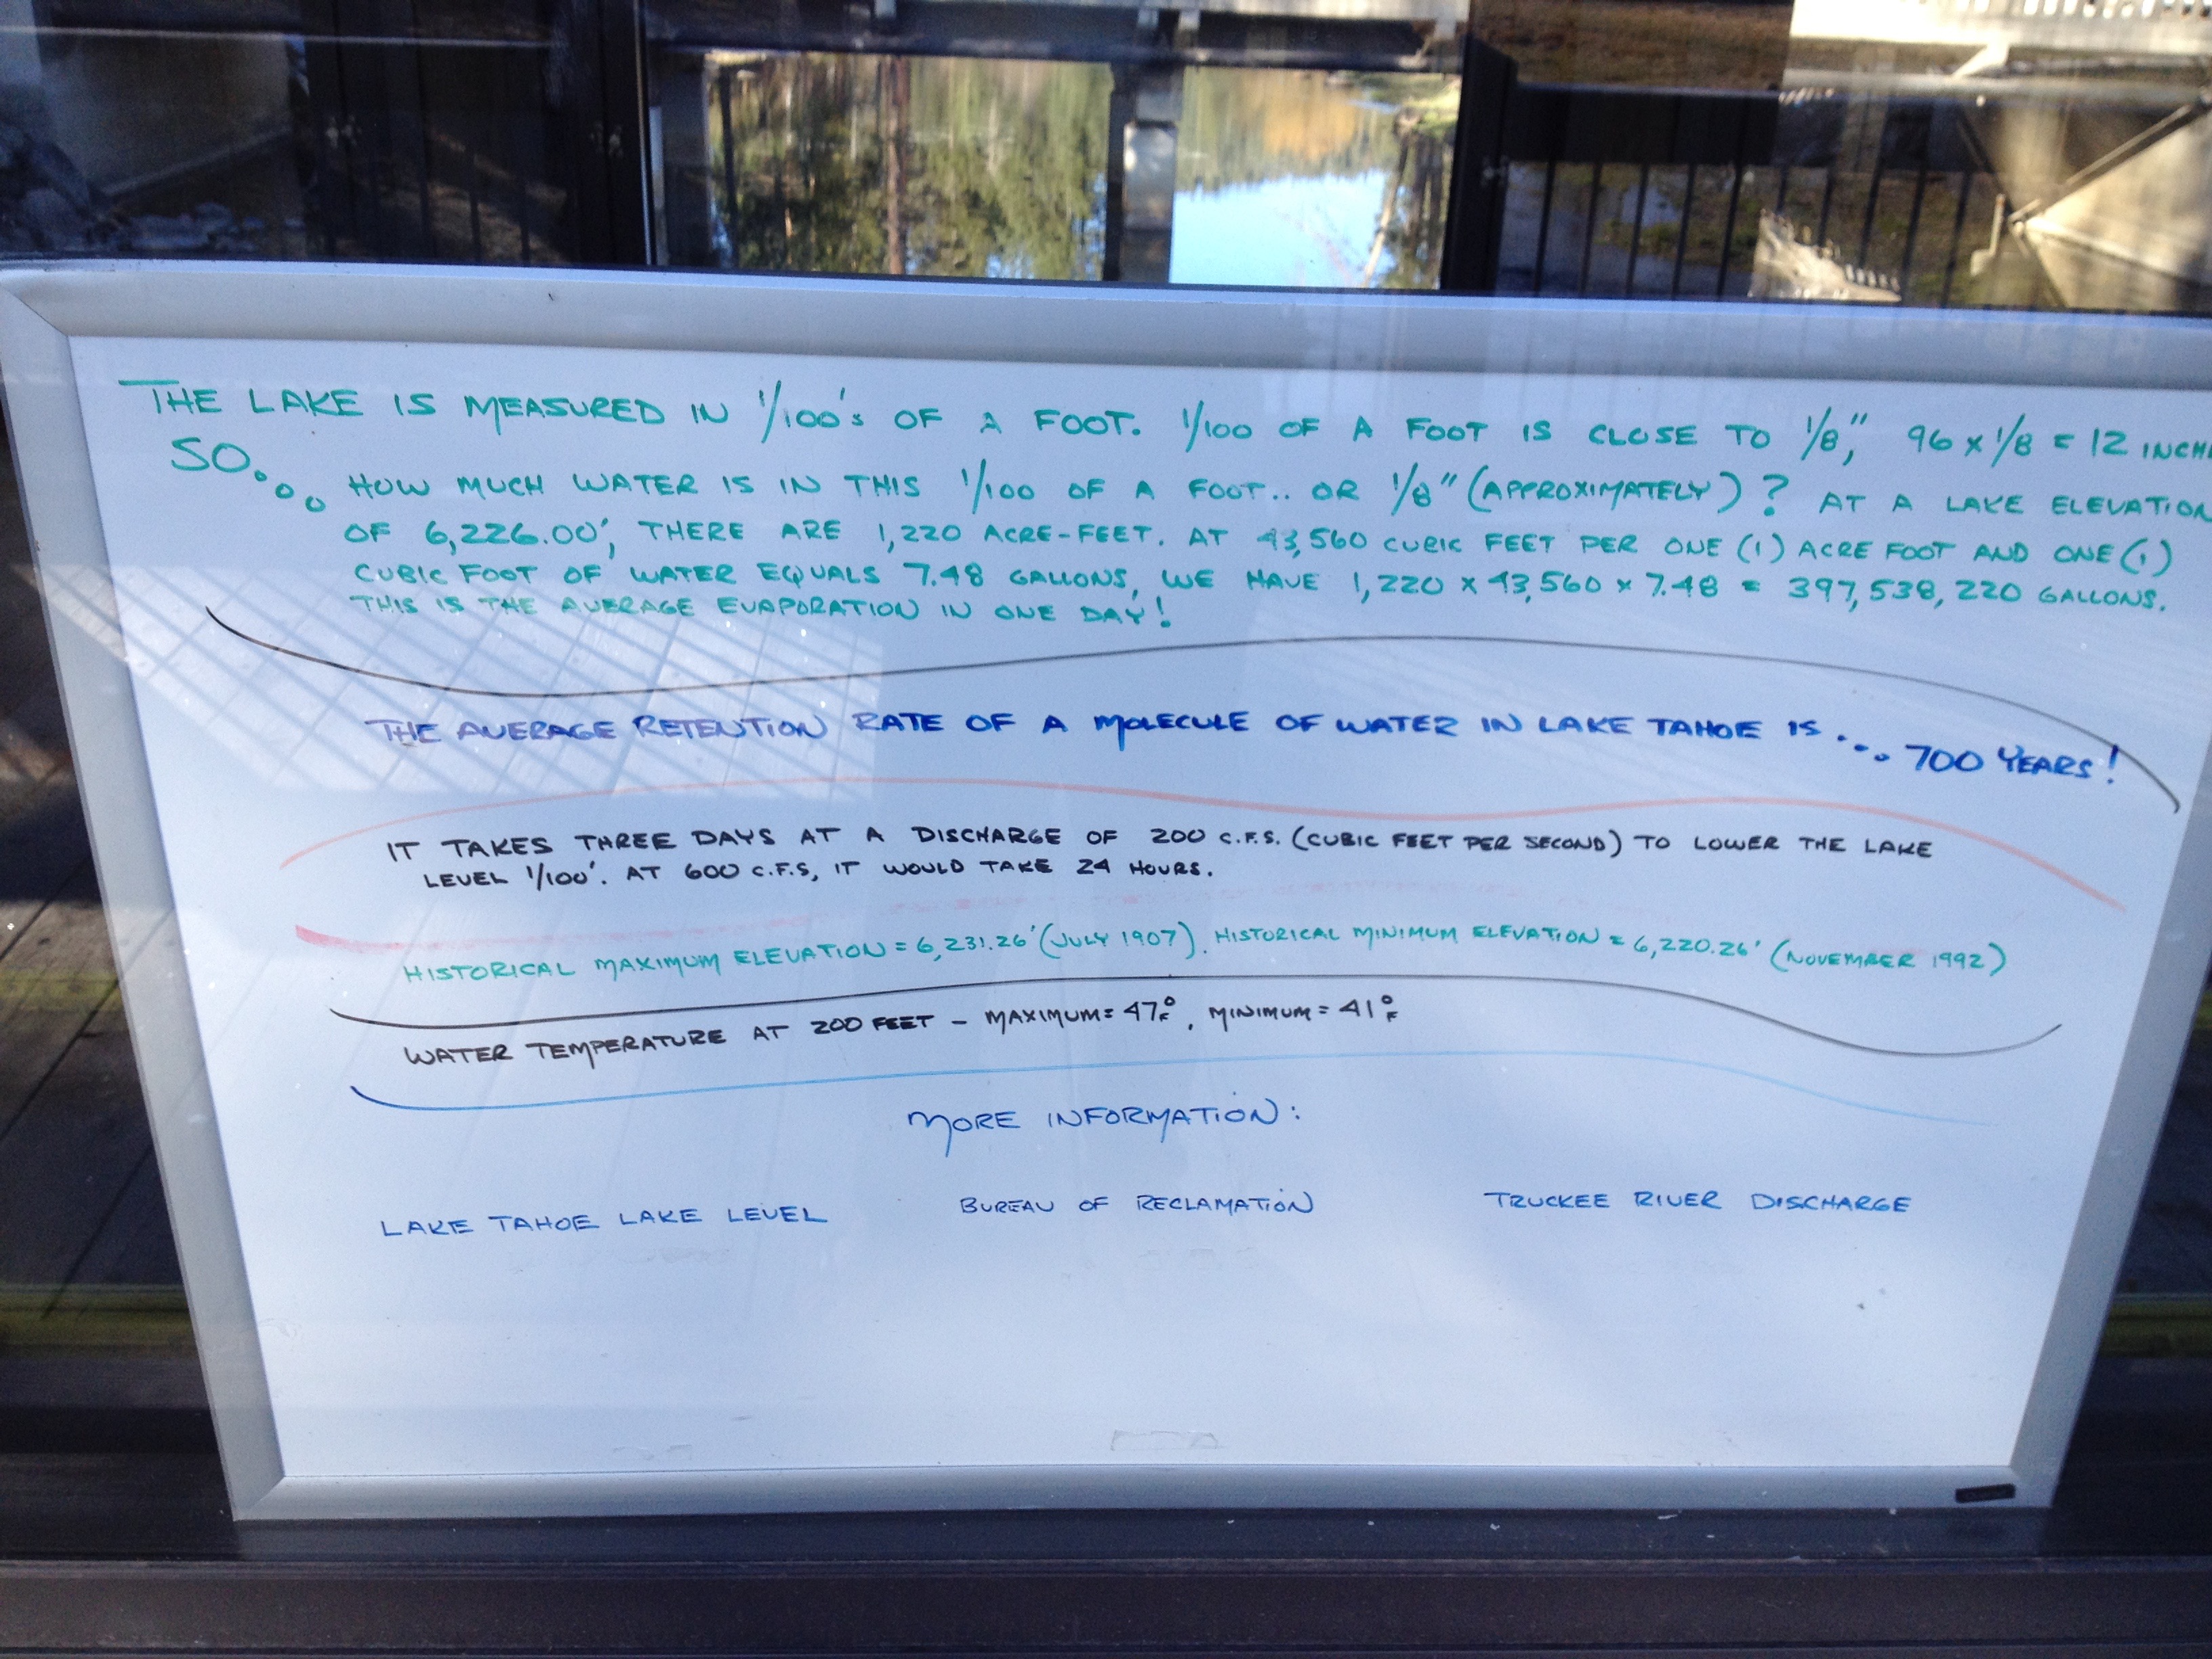 THE LAKE IS MEASURED IN 1/100's OF A FOOT. 1/100 OF A FOOT IS CLOSE TO 1/8", 96 x 1/8 = 12 INCH
SO.... HOW MUCH WATER IS IN THIS 1/100 OF A FOOT.. OR 1/8" (APPROXIMATELY)? AT A LAKE ELEVATION
OF 6,226.00', THERE ARE 1,220 ACRE-FEET. AT 43,560 CUBIC FEET PER ONE (1) ACRE FOOT AND ONE (1)
CUBIC FOOT OF WATER EQUALS 7.48 GALLONS, WE HAVE 1,220 x 43,560 x 7.48 = 397,538,220 GALLONS.
THIS IS THE AVERAGE EVAPORATION IN ONE DAY!
THE AVERAGE RETENTION RATE OF A MOLECULE OF WATER IN LAKE TAHOE IS.... 700 YEARS!
IT TAKES THREE DAYS AT A DISCHARGE OF 200 C.F.S. (CUBIC FEET PER SECOND) TO LOWER THE LAKE
LEVEL 1/100'. AT 600 C.F.S, IT WOULD TAKE 24 HOURS.
HISTORICAL MAXIMUM ELEVATION = 6,231.26' (JULY 1907). HISTORICAL MINIMUM ELEVATION = 6,220.26' (NOVEMBER 1992)
WATER TEMPERATURE AT 200 FEET - MAXIMUM = 47°F, MINIMUM = 41°F
MORE INFORMATION:
LAKE TAHOE LAKE LEVEL BUREAU OF RECLAMATION TRUCKEE RIVER DISCHARGE